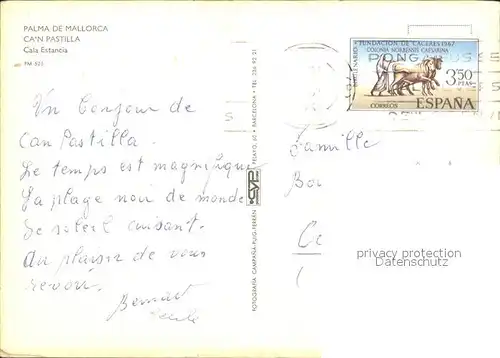 PALMA DE MALLORCA
CA'N PASTILLA
Cala Estancia
PM 525
Un bonjour de
Can Pastilla.
Le temps est magnifique
la plage noir de monde
Le soleil cuisant.
Au plaisir de vous
revoir.
FOTOGRAFIA CAMPAÑA-PUIG-FERRAN
CYP
PELAYO, 60 • BARCELONA • TEL. 256 92 01
FUNDACION DE CACERES 1967
COLONIA NORBENSIS CAESARINA
3,50
PTAS
CORREOS
ESPAÑA
Famille
privacy protection
Datenschutz